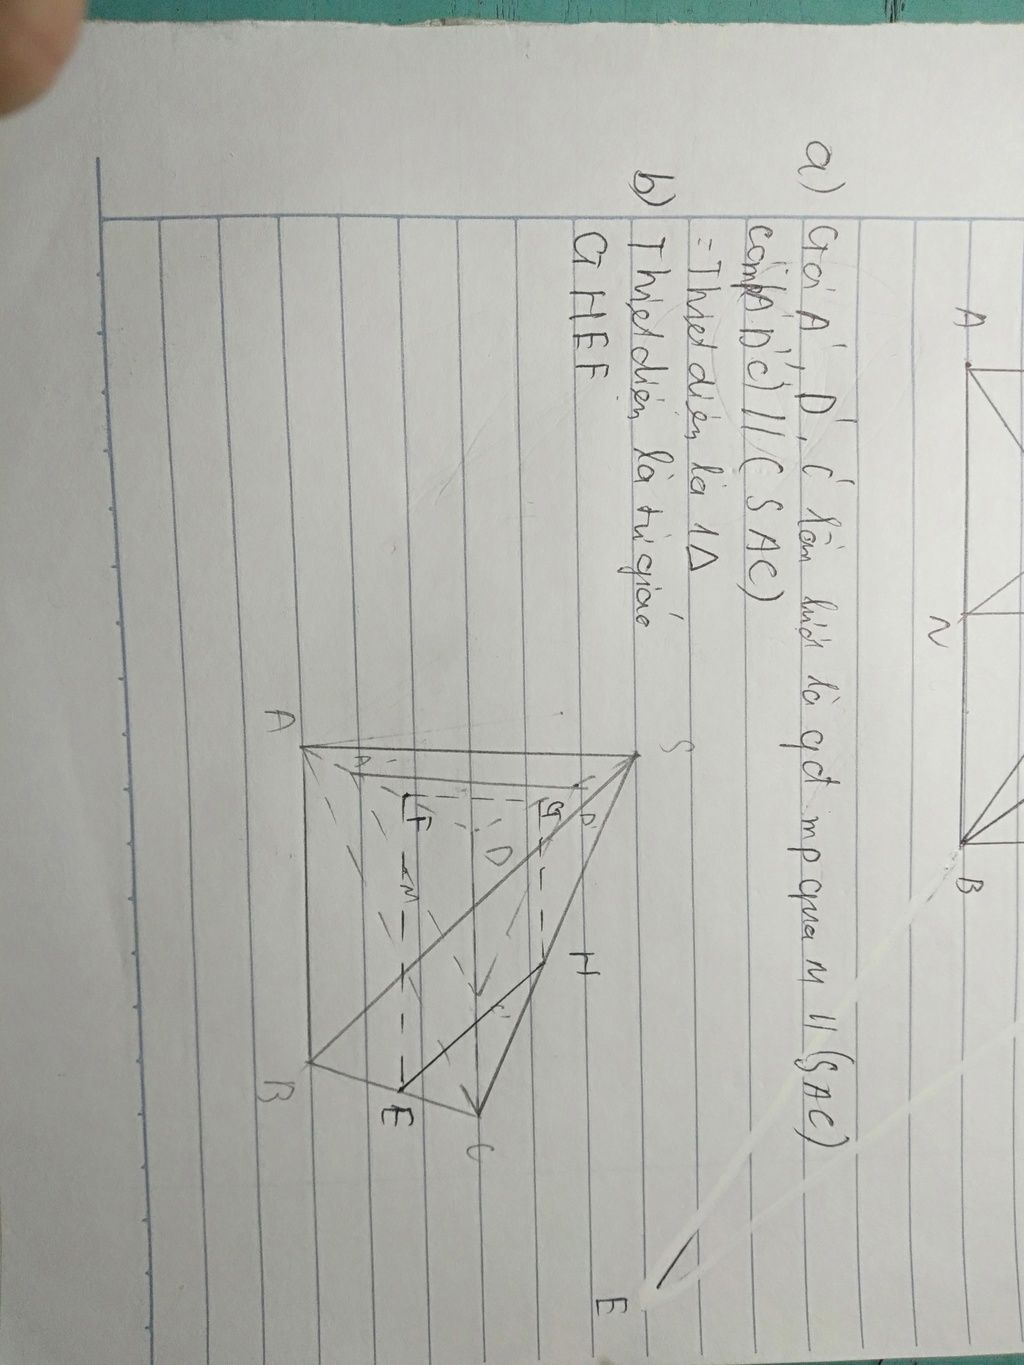 A
N
B
a) Gọi A', D', C' lần lượt là gđ mp qua M // (SAC)
có mp (A'D'C') // (SAC)
= Thiết diện là 1Δ
b) Thiết diện là tứ giác
GHEF
E
S
A
A'
D'
G
F
D
M
H
C'
B
E
C